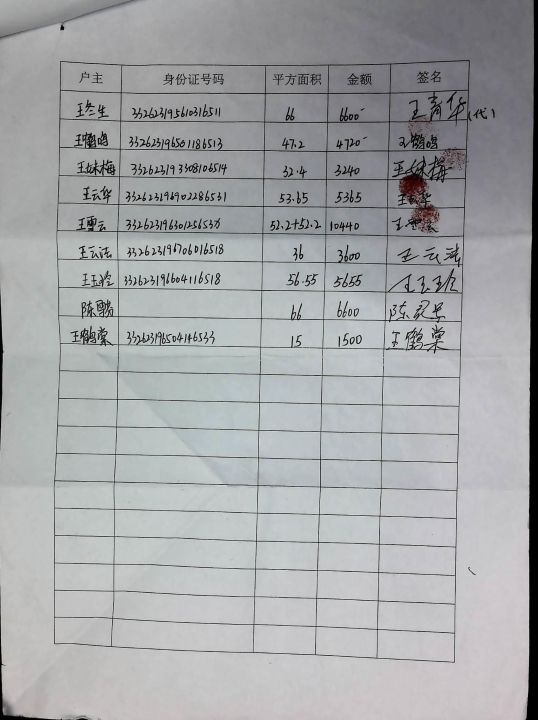 户主 身份证号码 平方面积 金额 签名
王冬生 332623195610316511 66 6600 王青华(代)
王鹤鸣 332623196501186513 47.2 4720 王鹤鸣
王妹梅 332623193308106514 32.4 3240 王妹梅
王云华 332623196902286531 53.65 5365 王云华
王雪云 52.2+52.2 10440
王云法 332623196706016518 36 3600 王云法
王玉玲 332623196604116518 56.55 5655
陈 66 6600 陈
王鹤棠 332623196504146533 15 1500 王鹤棠